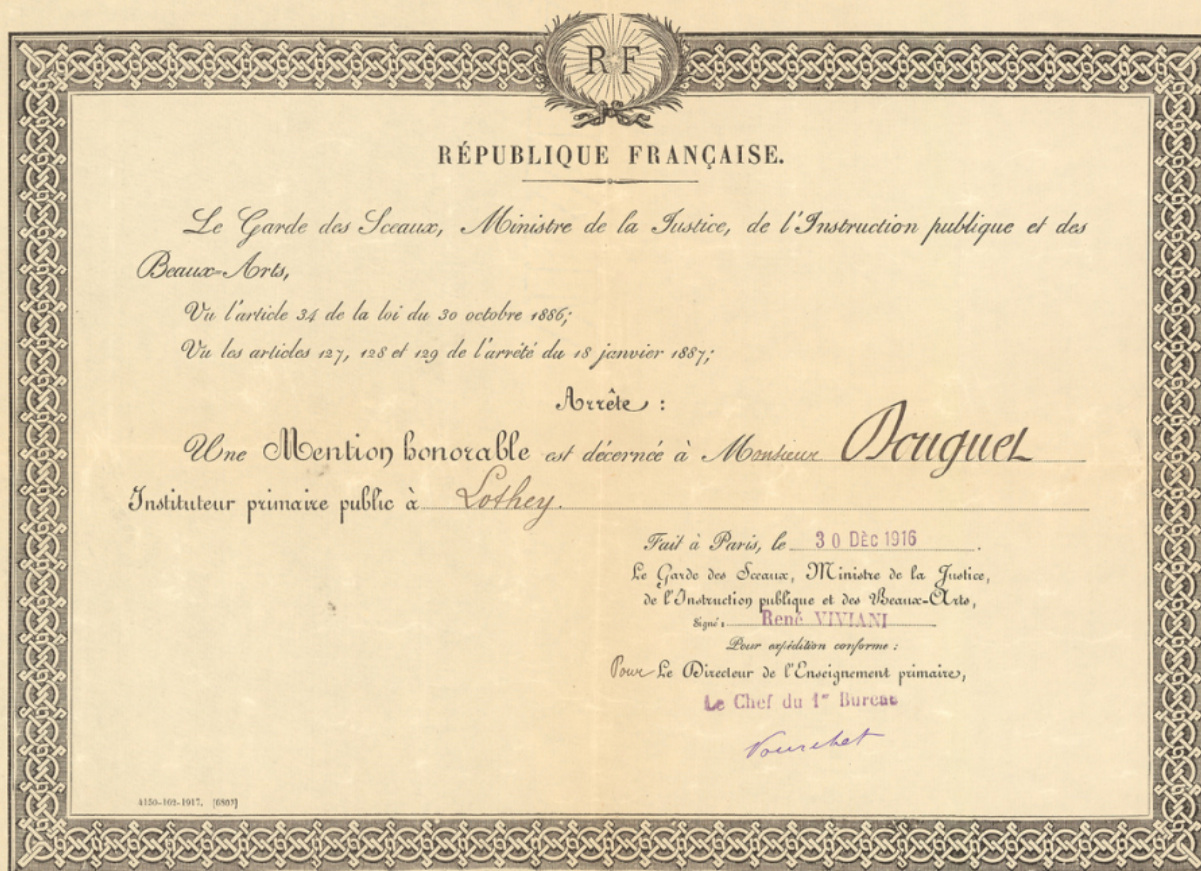 R F
RÉPUBLIQUE FRANÇAISE.
Le Garde des Sceaux, Ministre de la Justice, de l'Instruction publique et des
Beaux-Arts,
Vu l'article 34 de la loi du 30 octobre 1886;
Vu les articles 127, 128 et 129 de l'arrêté du 18 janvier 1887;
Arrête :
Une Mention honorable est décernée à Monsieur Douguet
Instituteur primaire public à Lothey.
Fait à Paris, le 30 Dèc 1916.
Le Garde des Sceaux, Ministre de la Justice,
de l'Instruction publique et des Beaux-Arts,
Signé : René VIVIANI
Pour expédition conforme :
Pour Le Directeur de l'Enseignement primaire,
Le Chef du 1er Bureau
A150-102-1917. [6807]